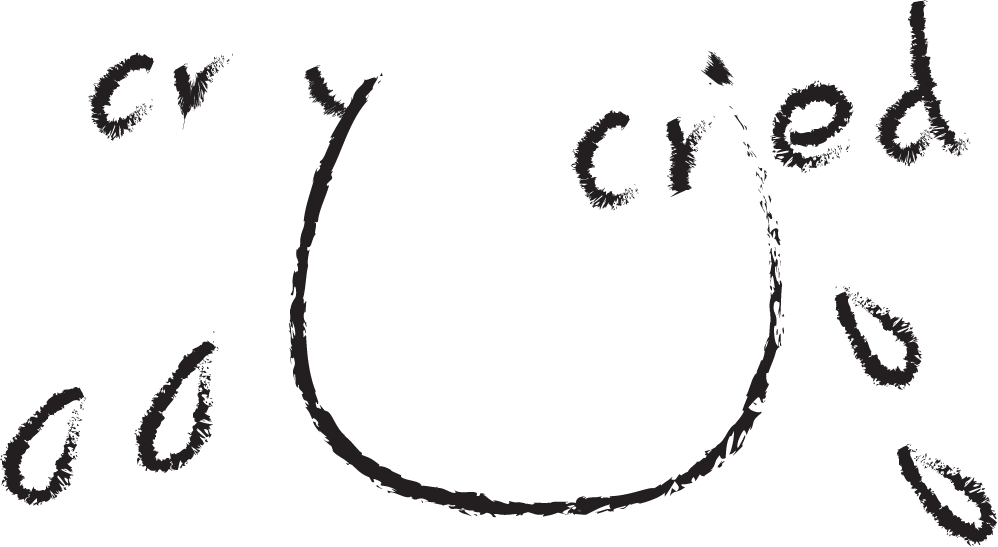 cry
cried